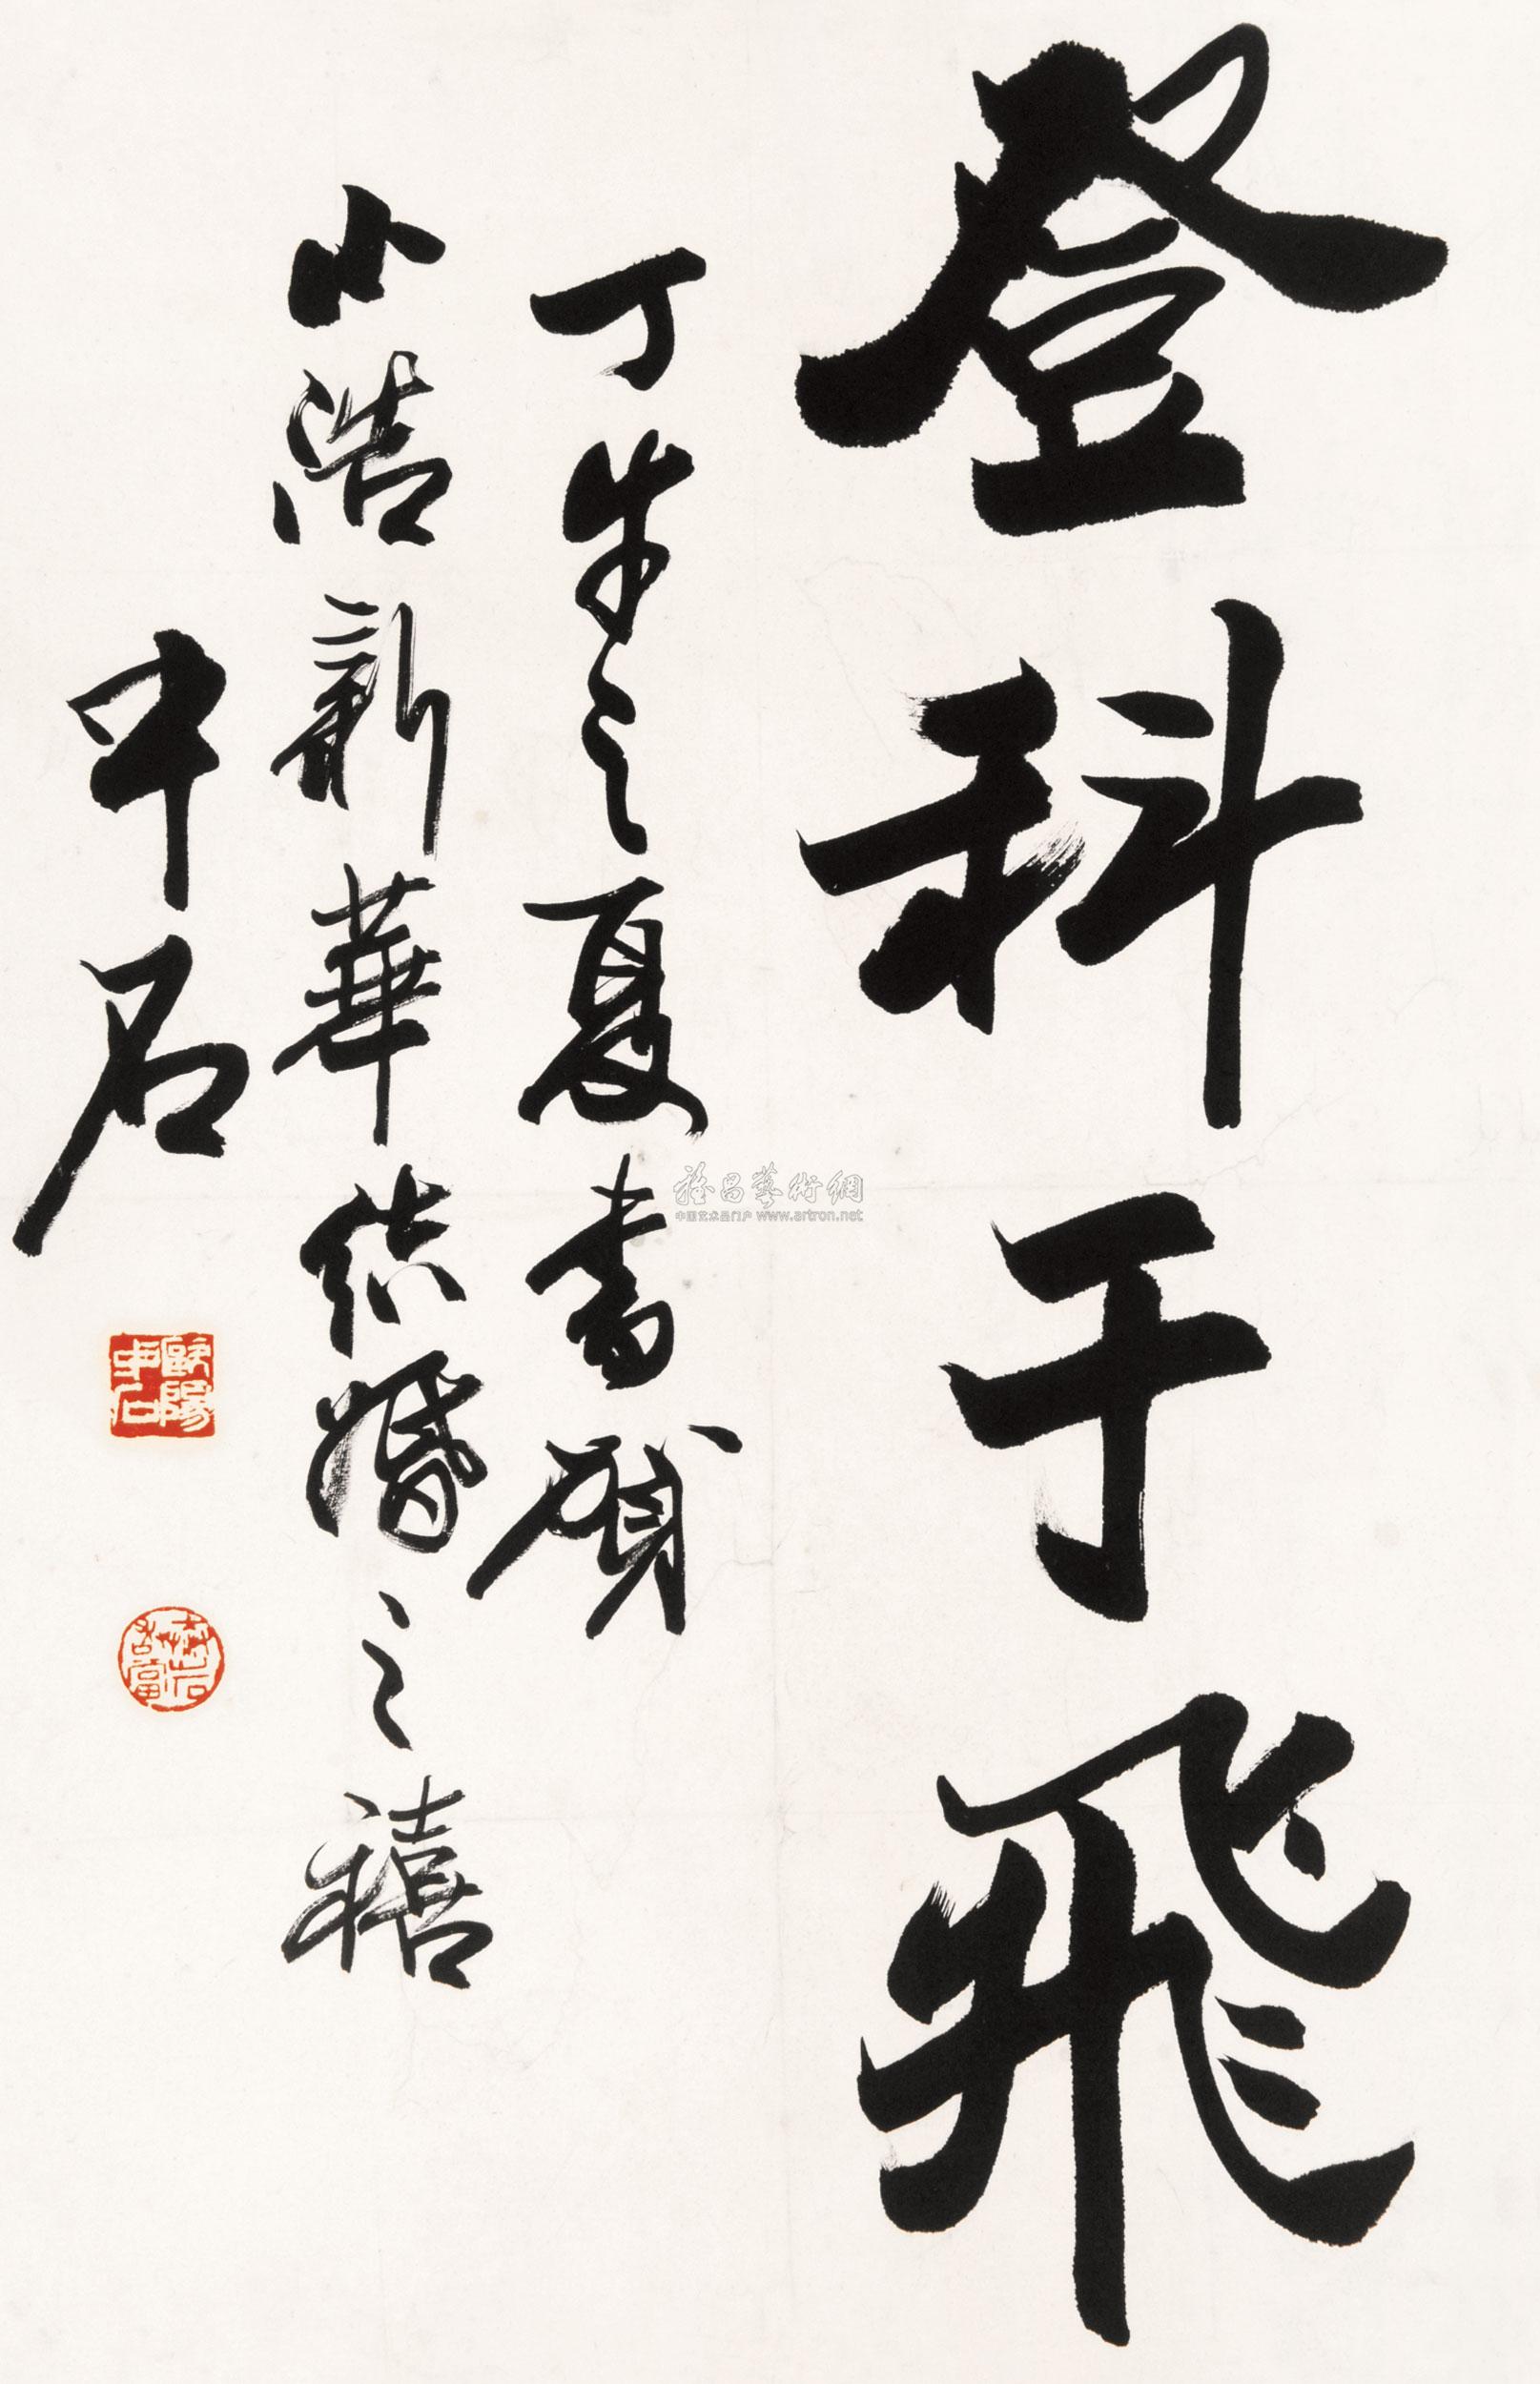 登科于飛
丁丑之夏書賀
小浩新華結婚之禧
中石
歐陽中石
雅昌藝術網
中国艺术品门户 www.artron.net